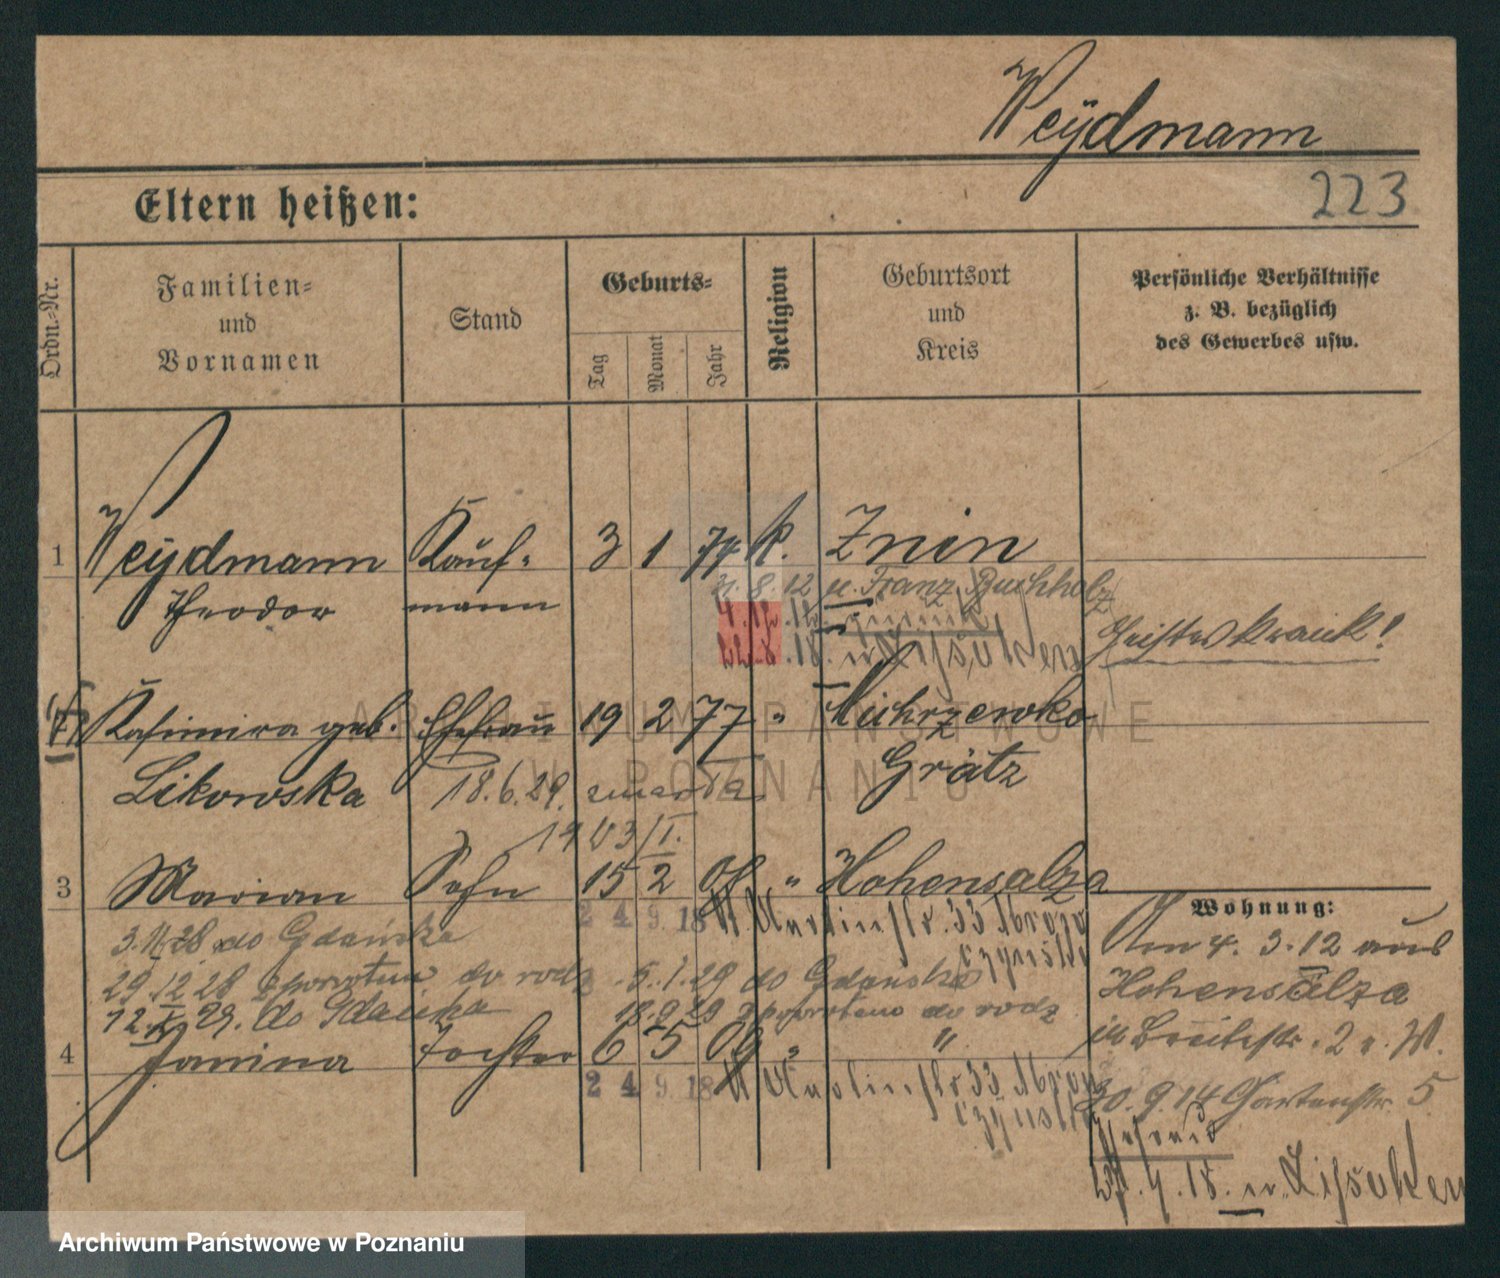 Weÿdmann
223
Eltern heißen:
Ordn.-Nr.
Familien-
und
Vornamen
Stand
Geburts-
Tag
Monat
Jahr
Religion
Geburtsort
und
Kreis
Persönliche Verhältnisse
z. B. bezüglich
des Gewerbes usw.
1 Weÿdmann Kauf- 3 1 74 k. Znin
Theodor mann
31. 8. 12 u. Franz Buchholz
Geisteskrank!
Kasimira geb. Ehefrau 19 2 77 " Michorzewko
Likowska Grätz
18.6.29. zmarła
3 Marian Sohn 15 2 " Hohensalza
24 9. 18
3. 11. 28 do Gdańska
29.12 28 z powrotem do rodz. 5.1.29 do Gdańska
12. 29. do Gdańska 18.9.29 z powrotem do rodz
4 Janina Tochter 6 5 09 " "
24 9. 18
Wohnung:
Am 4. 3. 12 aus
Hohensalza
in Breitestr. 2 v. W.
30. 9. 14 Gartenstr 5
ARCHIWUM PAŃSTWOWE
W POZNANIU
Archiwum Państwowe w Poznaniu